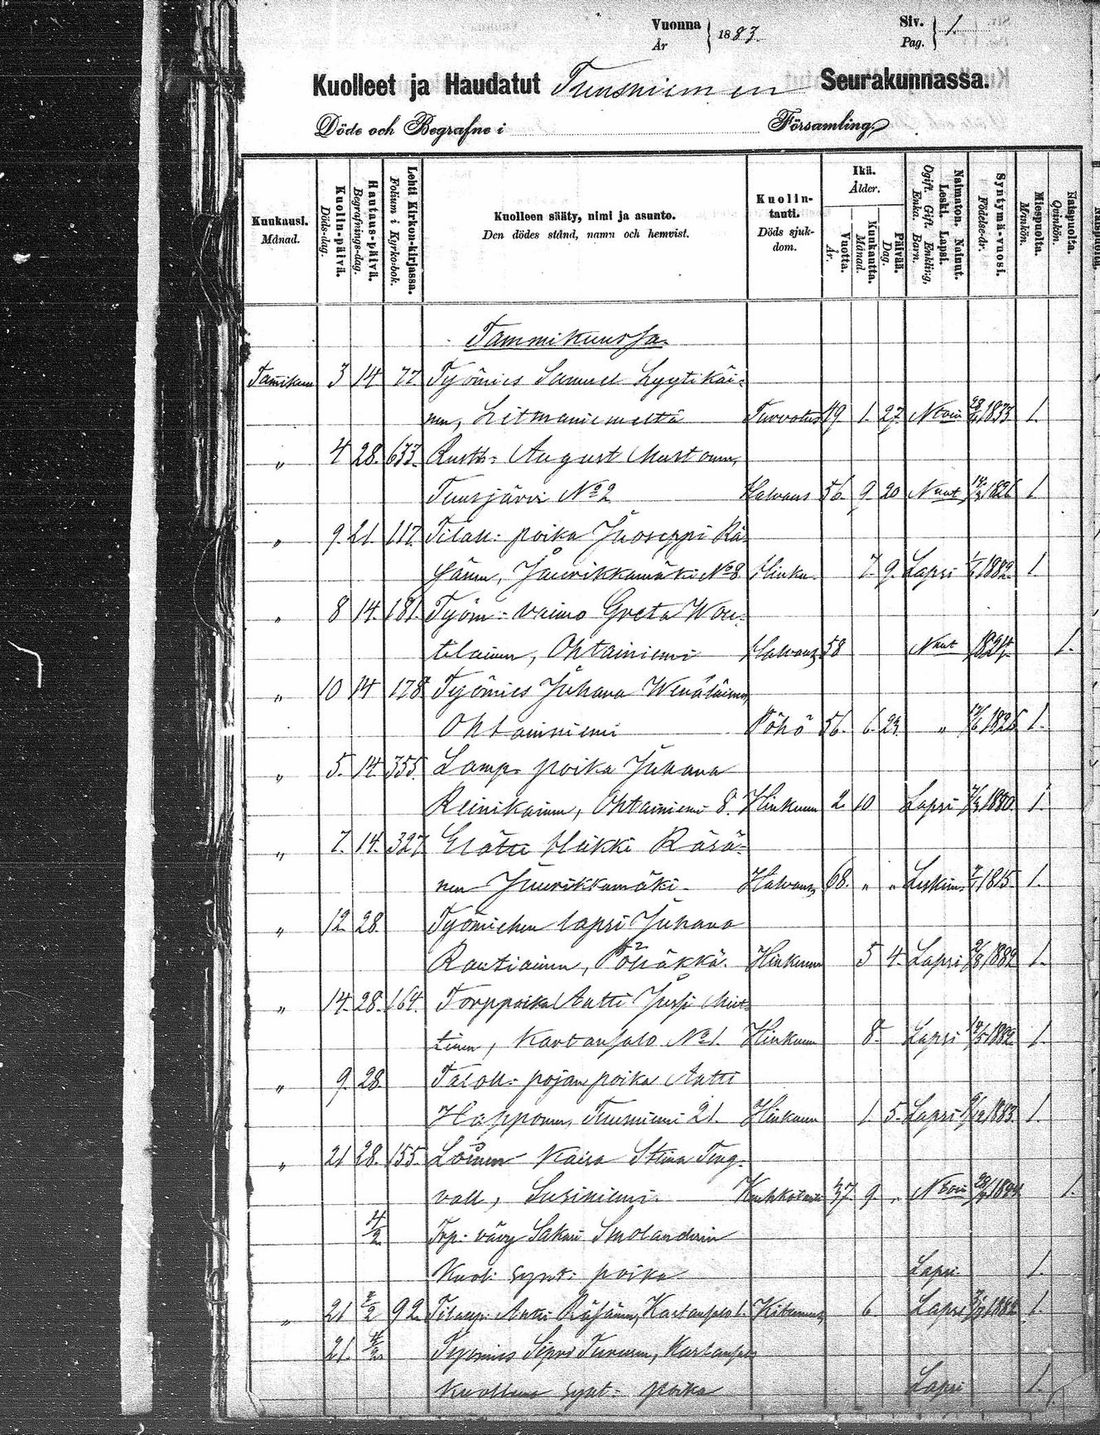 Vuonna 1883. Siv. 1.
År Pag.
Kuolleet ja Haudatut Tuusniemen Seurakunnassa.
Döde och Begrafne i Församling,
Kuukausi. Månad.
Kuolin-päivä. Döds-dag.
Hautaus-päivä. Begrafnings-dag.
Lehti Kirkon-kirjassa. Folium i Kyrko-bok.
Kuolleen sääty, nimi ja asunto.
Den dödes stånd, namn och hemvist.
Kuolin-tauti. Döds sjuk-dom.
Ikä. Ålder.
Vuotta. År.
Kuukautta. Månad.
Päivää. Dag.
Naimaton. Nainut. Leski. Lapsi. Ogift. Gift. Enkling. Enka. Barn.
Syntymä-vuosi. Födelse-år.
Miespuolta. Mankön.
Naispuolta. Qvinkön.
Tammikuussa.
Tamikuu 3 14 77 Työmies Samuel Lyytikäi-
nen, Litmaniemeltä 49 1. 27 1833 1.
" 4 28. 633. August Martonen,
Tuusjärvi No 2 Halvaus 56. 9. 20 Nait 1826 1.
" 9. 21. 117. poika Juoseppi Rä-
sänen, Juurikkamäki No 8 Hinku 7. 9. Lapsi 1882. 1.
" 8 14. 181. Työm: vaimo Greta Wou-
tilainen, Ohtainiemi Halvaus 58 Nait 1824 1.
" 10 14 178. Työmies Juhana Wenäläinen,
Ohtainniemi Pöhö 56. 6. 23. " 1826 1.
" 5. 14. 355. Lamp. poika Juhana
Reinikainen, Ohtainiemi 8. Hinkuun 2 10 Lapsi 1880. 1.
" 7. 14. 327. Elätti Heikki Räsä-
nen Juurikkamäki. Halvaus 68. " " 1815. 1.
" 12 28. Työmiehen lapsi Juhana
Rautiainen, Hinkuun 5 4. Lapsi 1882 1.
" 14. 28. 164. Torppoika Antti Jussi Miet-
tinen, Kartansalo No 1. Hinkuun 8. Lapsi 1882 1.
" 9. 28. Taloll: pojan poika Antti
Happonen, Tuusniemi 21. Hinkuun 1. 5. Lapsi 1883. 1.
" 21 28. 155. Loinen Kaisa Stiina Teng-
vall, Susiniemi. 37 9. " 1.
4/2 Trp: vävy Sakari Smolanderin
Kuol: synt: poika Lapsi. 1.
" 21 4/2 92. Antti Räsänen, Kartansalo 1. 6. Lapsi 1882. 1.
21. 4/2 Työmies Turunen, Kartansalo
Kuolleena synt: poika Lapsi 1.